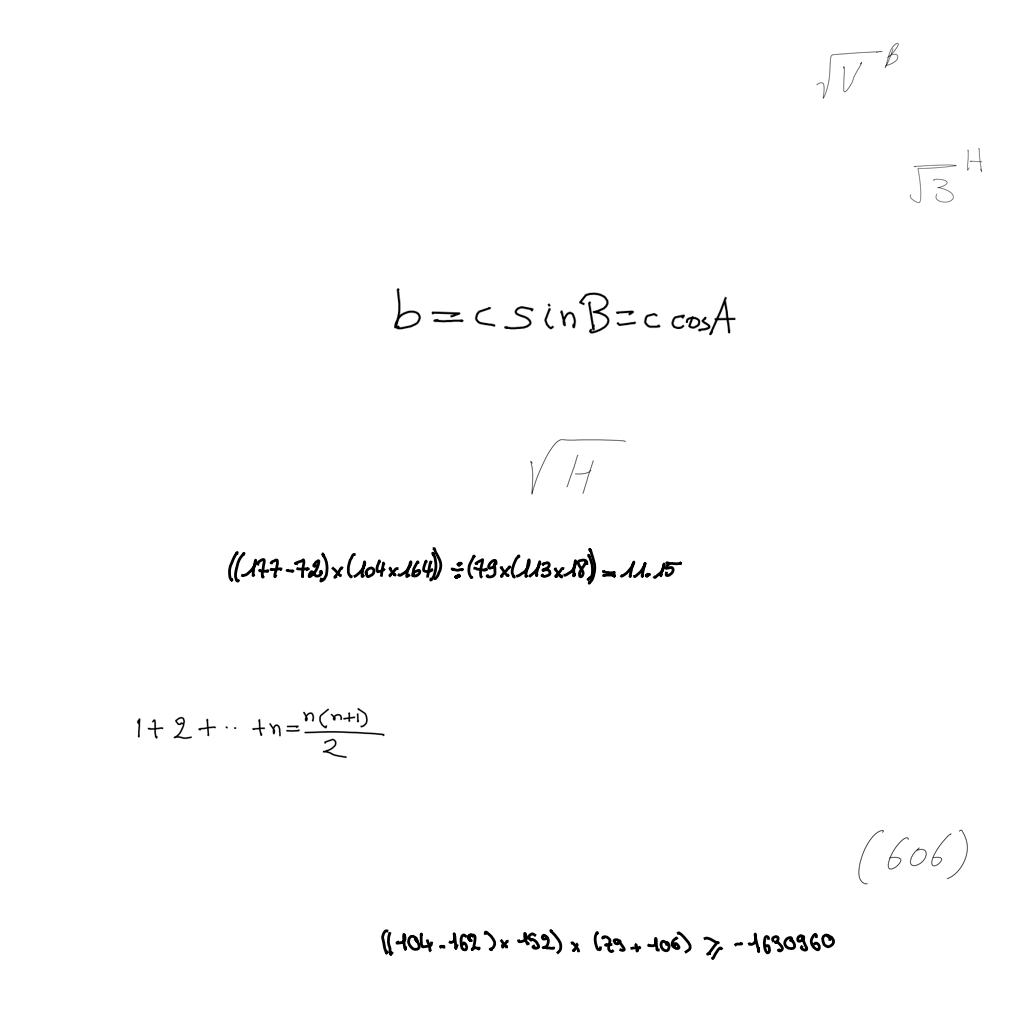 √V^B
√3^H
b=c sinB=c cosA
√H
((177-72)×(104×164))÷(79×(113×18))=11.15
1+2+··+n=n(n+1)/2
(606)
((104-162)×152)×(79+106)⩾-1630960